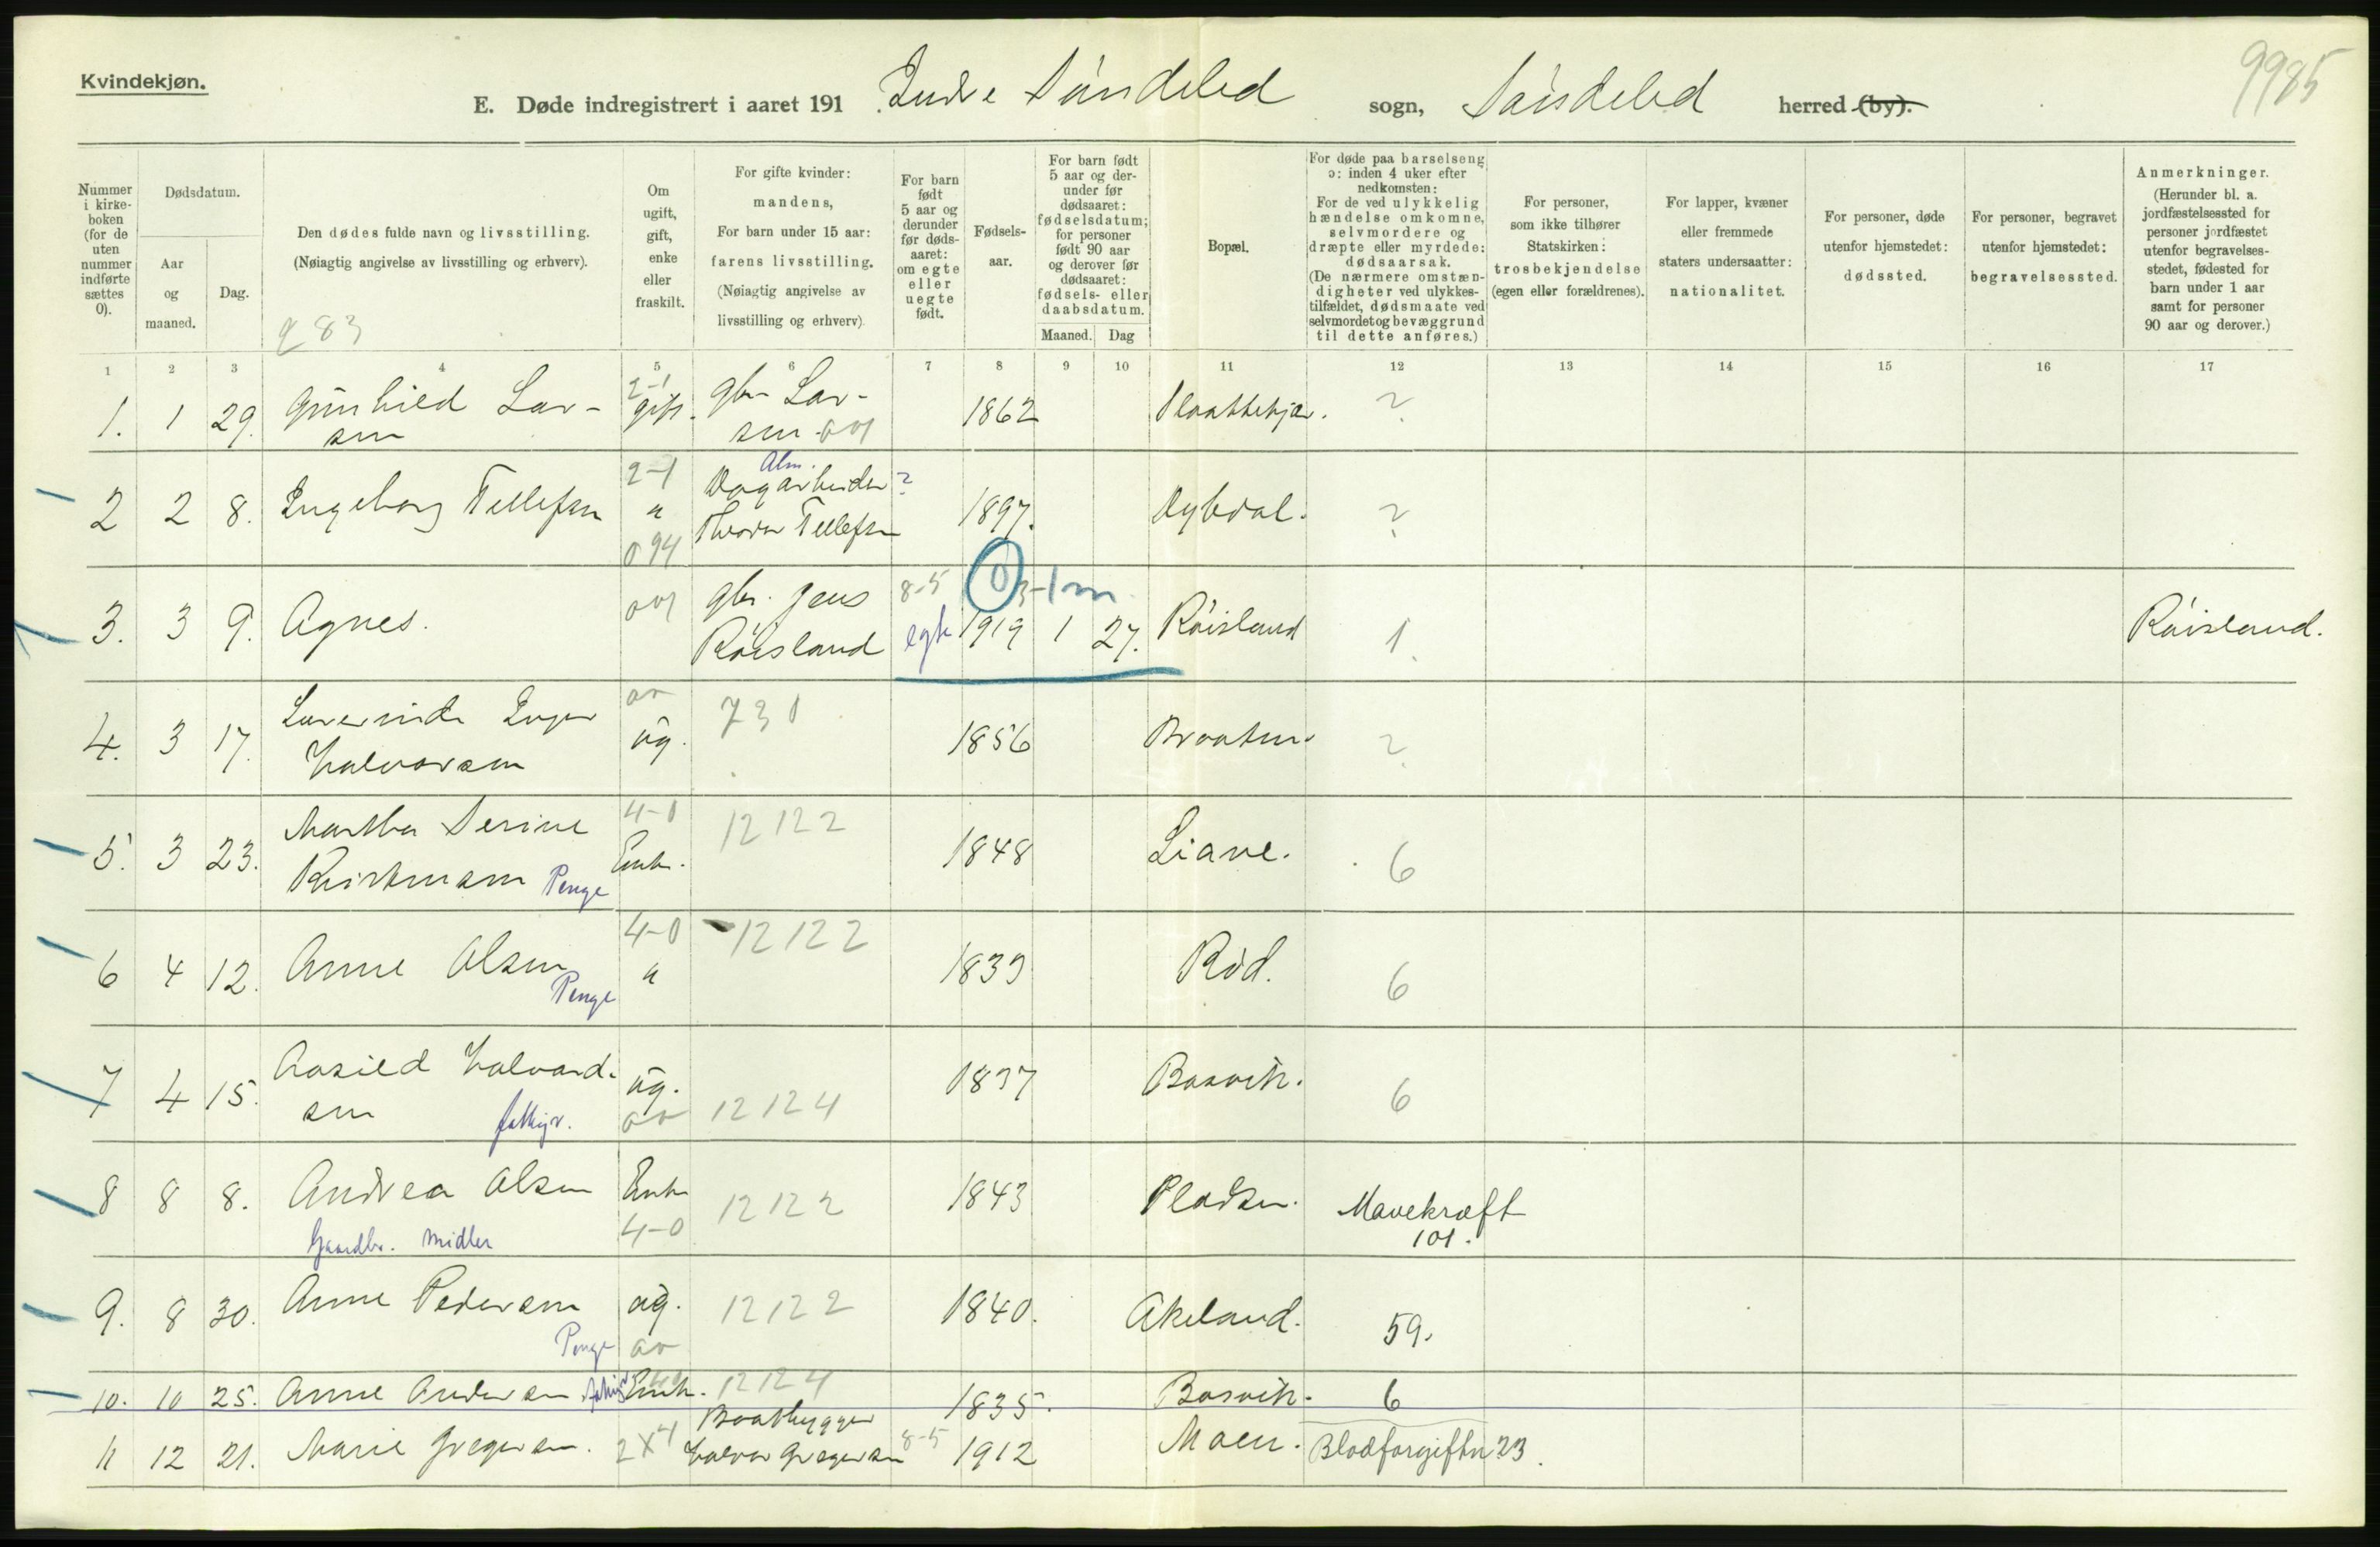 Kvindekjøn.
9985
E. Døde indregistrert i aaret 191 . Indre Søndeled sogn, Søndeled herred (by).
Nummer i kirkeboken (for de uten nummer indførte sættes 0).
Dødsdatum.
Aar og maaned.
Dag.
Den dødes fulde navn og livsstilling.
(Nøiagtig angivelse av livsstilling og erhverv).
283
Om ugift, gift, enke eller fraskilt.
For gifte kvinder: mandens, For barn under 15 aar: farens livsstilling.
(Nøiagtig angivelse av livsstilling og erhverv).
For barn født 5 aar og derunder før dødsaaret: om egte eller uegte født.
Fødselsaar.
For barn født 5 aar og derunder før dødsaaret: fødselsdatum; for personer født 90 aar og derover før dødsaaret: fødsels- eller daabsdatum.
Maaned. Dag
Bopæl.
For døde paa barselseng ɔ: inden 4 uker efter nedkomsten: For de ved ulykkelig hændelse omkomne, selvmordere og dræpte eller myrdede: dødsaarsak. (De nærmere omstændigheter ved ulykkestilfældet, dødsmaate ved selvmordet og bevæggrund til dette anføres.)
For personer, som ikke tilhører Statskirken: trosbekjendelse (egen eller forældrenes).
For lapper, kvæner eller fremmede staters undersaatter: nationalitet.
For personer, døde utenfor hjemstedet: dødssted.
For personer, begravet utenfor hjemstedet: begravelsessted.
Anmerkninger. (Herunder bl. a. jordfæstelsessted for personer jordfæstet utenfor begravelsesstedet, fødested for barn under 1 aar samt for personer 90 aar og derover.)
1 2 3 4 5 6 7 8 9 10 11 12 13 14 15 16 17
1. 1 29. Gunhild Larsen 2-1 gift. gbr Larsen 001 1862 ?
2 2 8. Ingeborg Tellefsen 2-1 " 094 Alm. Dagarbeider ? Theodor Tellefsen 1897. Dybdal. ?
3. 3 9. Agnes. 001 gbr. Jens Røisland 8-5 egte 0 3-1m 1919 1 27. Røisland 1. Røisland.
4. 3 17. Inger Halvorsen ug. 730 1856 Braaten. ?
5. 3 23. Martha Serine Kristensen Penge 4-0 Enk. 12122 1848 Liane. 6
6 4 12. Anne Olsen Penge 4-0 " 12122 1839 Rød. 6
7 4 15. Aasild Halvordsen fattigv. ug. 12124 1837 Bosvik. 6
8 8 8. Andrea Olsen Gaardbr. midler Enk 4-0 12122 1843 Pladsen. Mavekræft 101.
9. 8 30. Anne Pedersen Penge ug. 12122 1840. Akeland. 59.
10. 10 25. Anne Andersen Enk. 12124 1835. Bosvik. 6
11 12 21. Marie Gregersen. 2x4 Baatbygger Halvor Gregersen 8-5 1912 Moen. Blodforgiftn 23.